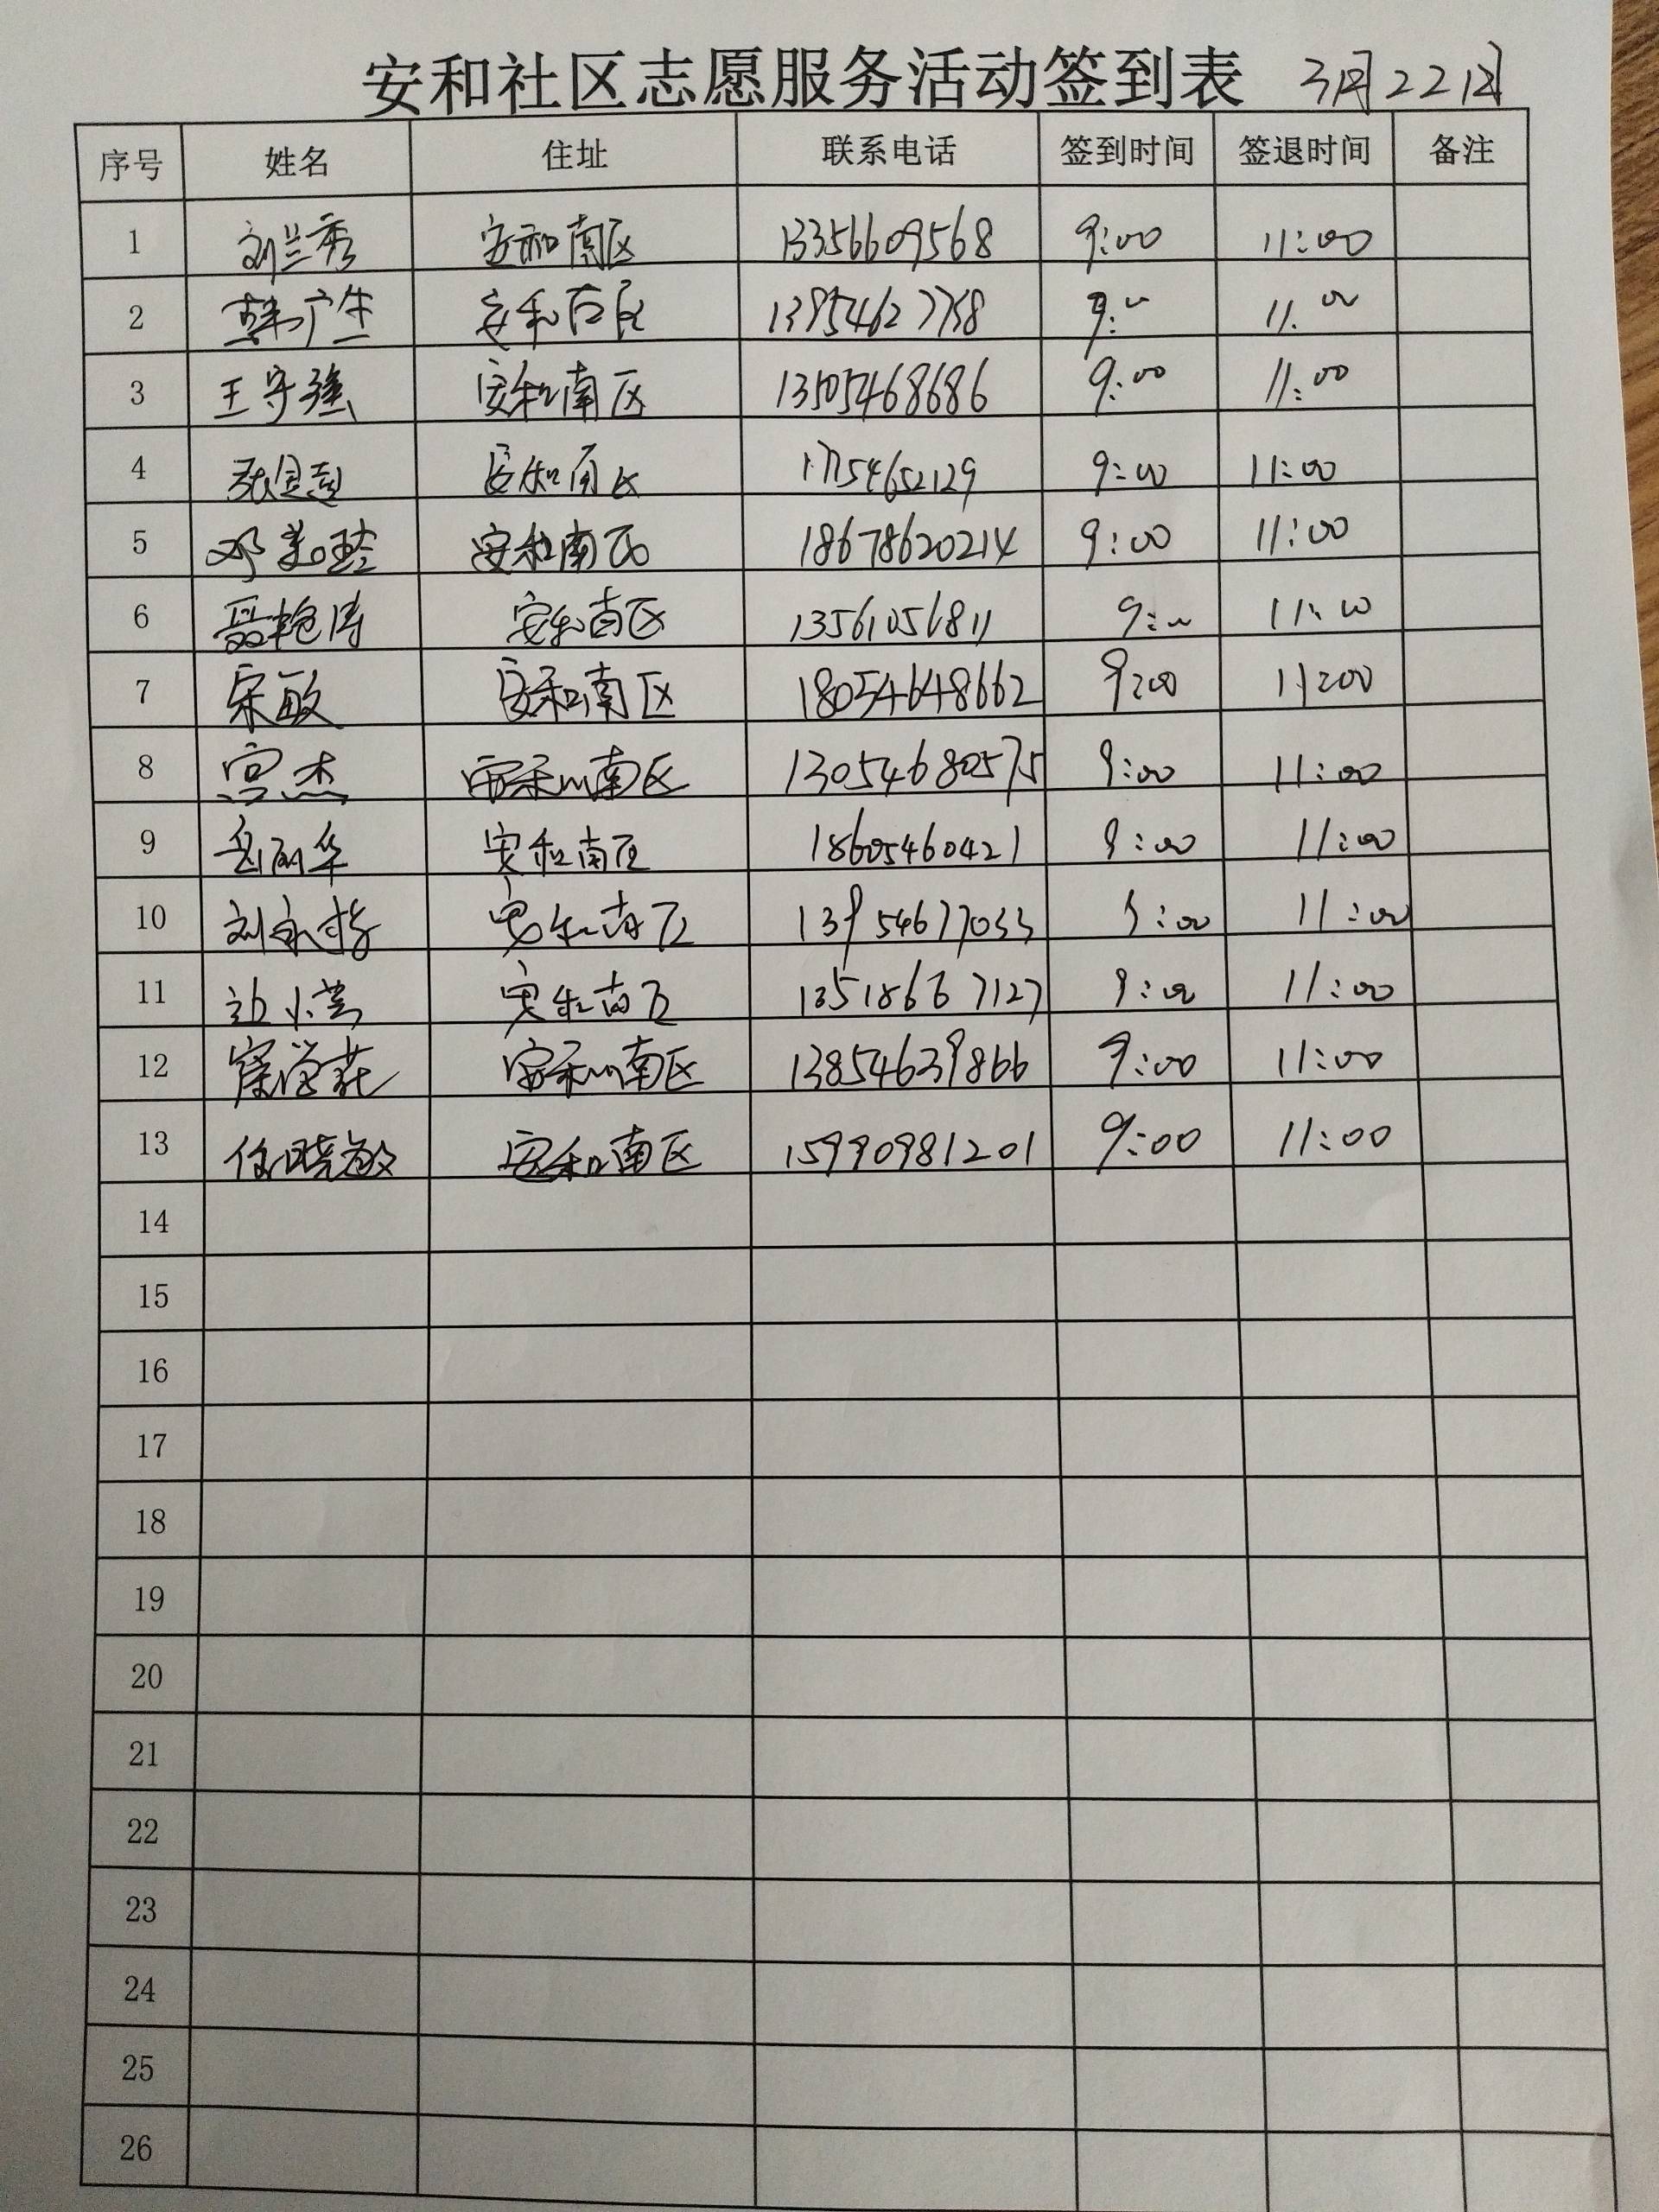 安和社区志愿服务活动签到表 3月22日
序号 姓名 住址 联系电话 签到时间 签退时间 备注
1 刘兰秀 安和南区 13356609568 9:00 11:00
2 韩广生 安和南区 13954627758 9:00 11:00
3 王守强 安和南区 13505468686 9:00 11:00
4 安和南区 17754652129 9:00 11:00
5 邓美玲 安和南区 18678620214 9:00 11:00
6 聂艳涛 安和南区 13561056811 9:00 11:00
7 宋敏 安和南区 18054648662 9:00 11:00
8 宫杰 安和南区 13054680575 9:00 11:00
9 岳丽华 安和南区 18605460421 9:00 11:00
10 安和南区 13954677033 9:00 11:00
11 安和南区 13518667127 9:00 11:00
12 安和南区 13854639866 9:00 11:00
13 任晓敏 安和南区 15990981201 9:00 11:00
14
15
16
17
18
19
20
21
22
23
24
25
26